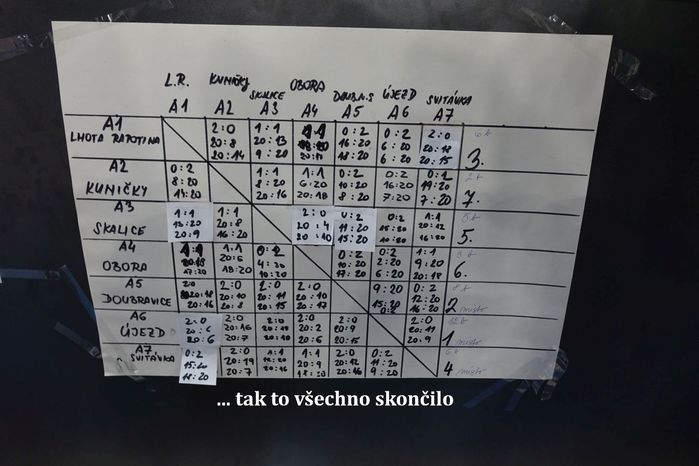 L.R. KUNIČKY SKALICE OBORA DOUBR.S ÚJEZD SVITÁVKA
A1 A2 A3 A4 A5 A6 A7
A1 2:0 1:1 0:2 0:2 2:0
LHOTA RAPOTINA 20:8 20:13 16:20 6:20 20:18 3.
20:14 9:20 18:20 6:20 20:15
A2 0:2 1:1 1:1 0:2 0:2 0:2
KUNIČKY 8:20 8:20 6:20 10:20 16:20 19:20 7.
14:20 20:16 20:18 8:20 7:20 7:20
A3 1:1 1:1 2:0 0:2 0:2 1:1
SKALICE 13:20 20:8 20:4 11:20 15:20 20:12 5.
20:9 16:20 20:10 15:20 10:20 16:20
A4 1:1 1:1 0:2 0:2 0:2 1:1
OBORA 20:6 4:20 10:20 2:20 9:20 6.
17:20 18:20 10:20 17:20 6:20 20:18
A5 2:0 2:0 2:0 2:0 9:20 0:2
DOUBRAVICE 20:18 20:10 20:11 20:10 15:20 12:20 2 místo
20:16 20:8 20:15 20:17 0:2 16:20
A6 2:0 2:0 2:0 2:0 2:0 2:0
ÚJEZD 20:6 20:16 20:15 20:2 20:9 20:11 1 místo
20:6 20:7 20:10 20:6 20:15 20:9
A7 0:2 2:0 1:1 1:1 2:0 0:2
SVITÁVKA 15:20 20:19 12:20 20:9 20:12 11:20 4 místo
18:20 20:7 20:16 18:20 20:16 9:20
... tak to všechno skončilo